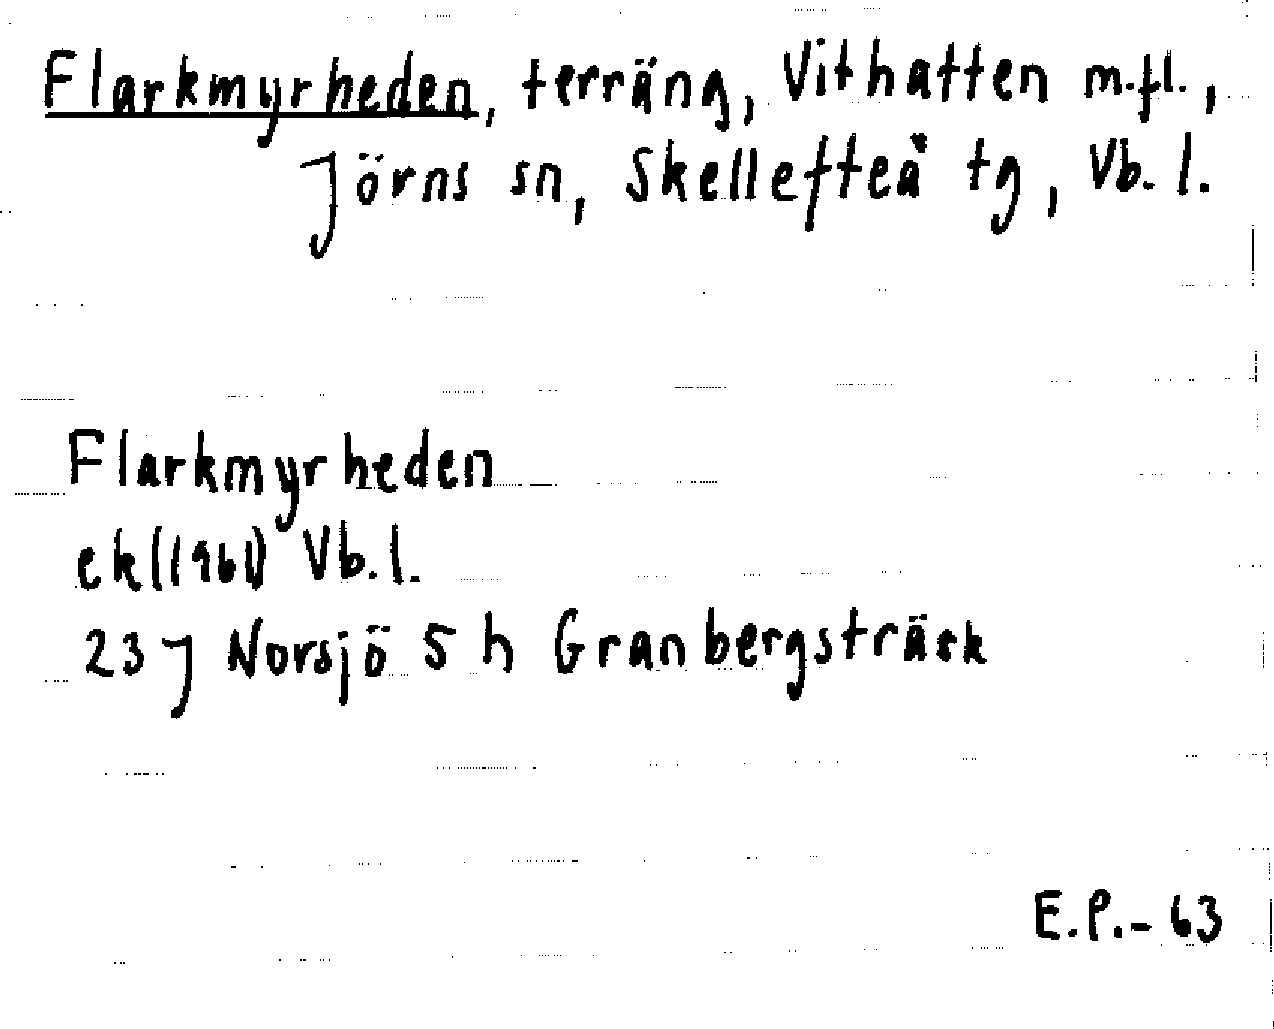 Flarkmyrheden, terräng, Vithatten m.fl.,
Jörns sn, Skellefteå tg, Vb. l.
Flarkmyrheden
ek(1961) Vb. l.
23 J Norsjö 5 h Granbergsträsk
E.P.- 63